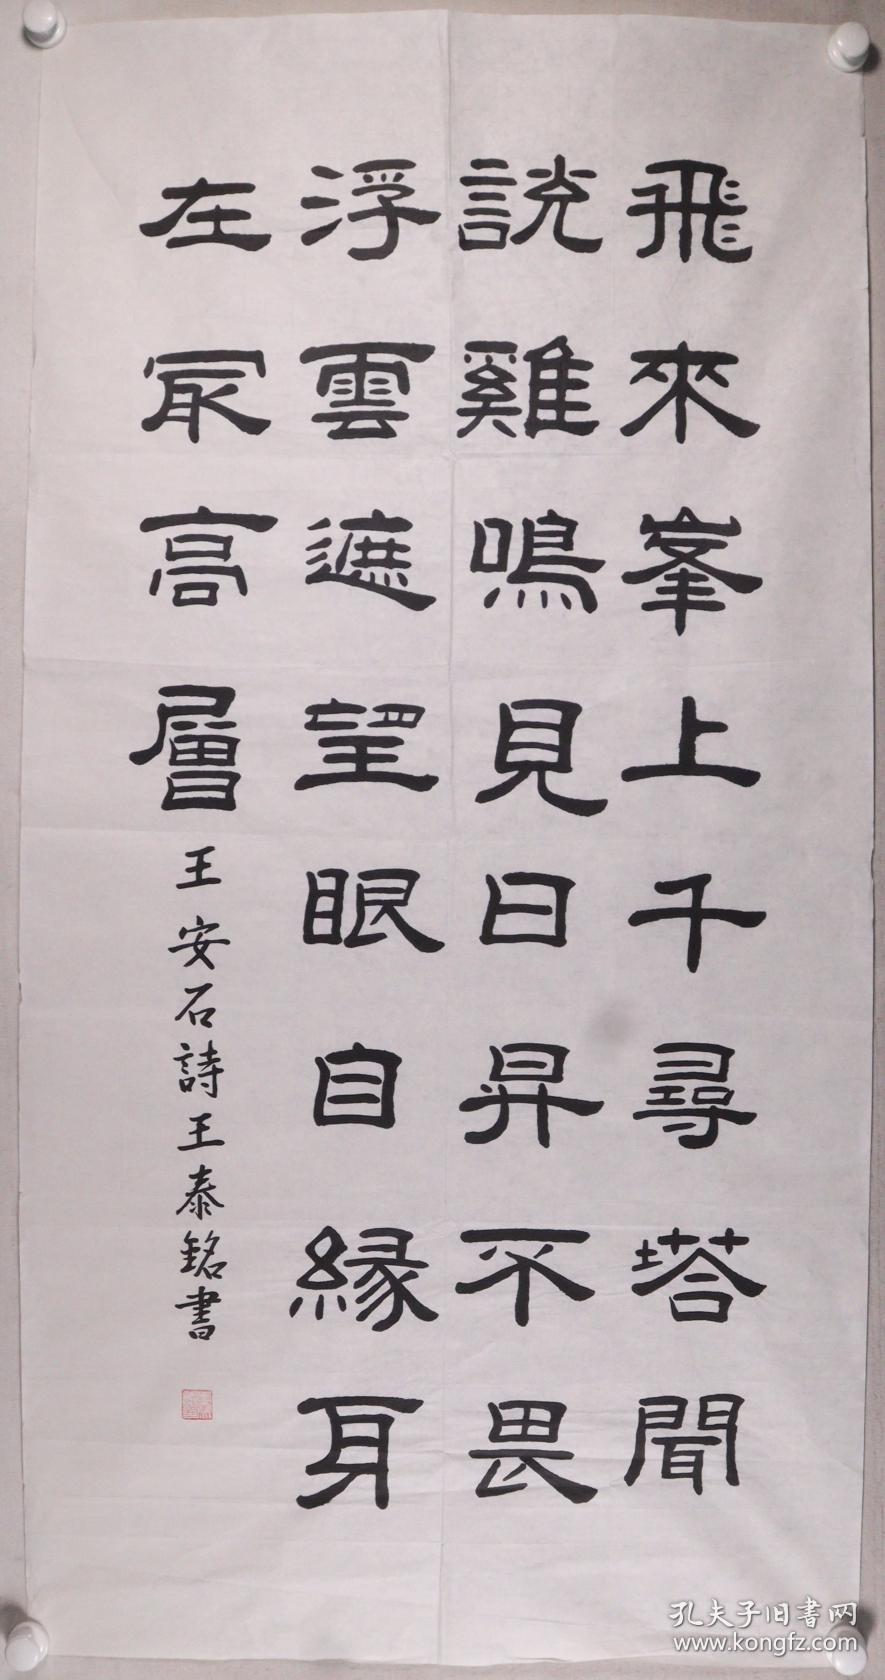 飛來峯上千尋塔聞
說雞鳴見日昇不畏
浮雲遮望眼自緣身
在冣高層
王安石詩王泰銘書
孔夫子旧書网
www.kongfz.com